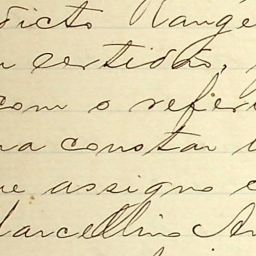 dicto Rangel
certidão,
com o referi
na constar
ue assigno e
Marcellino An